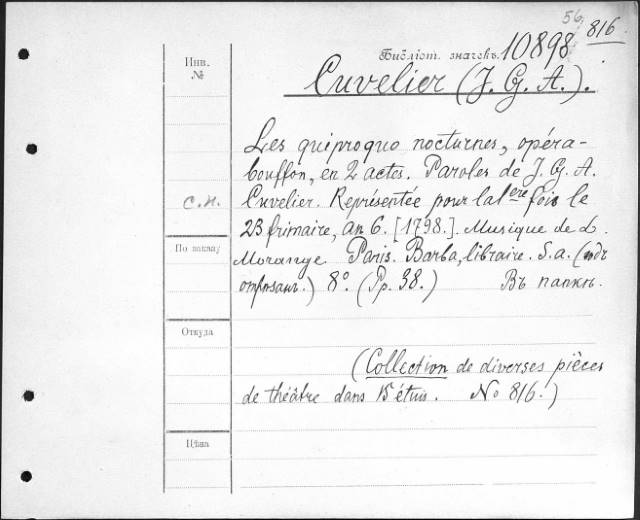 56
816
Библіот. значекъ. 10898
Инв.
№
Cuvelier (J. G. A.).
Les quiproquo nocturnes, opéra-
bouffon, en 2 actes. Paroles de J. G. A.
с.н. Cuvelier. Représentée pour la 1ère fois le
23 frimaire, an 6. [1798.]. Musique de L.
По заказу
Morange. Paris. Barba, libraire. S.a. (
) 8º. (Pp. 38.) Въ папкѣ.
Откуда
(Collection de diverses pièces
de théâtre dans 15 étuis. No 816.)
Цѣна